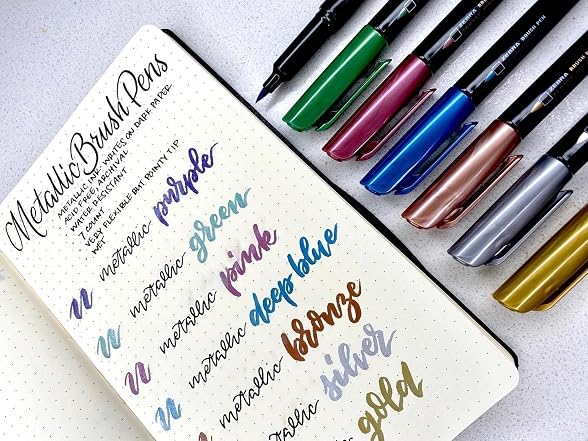 Metallic Brush Pens
METALLIC INK: WRITES ON DARK PAPER
ACID FREE, ARCHIVAL
WATER RESISTANT
7 COUNT
VERY FLEXIBLE BUT POINTY TIP
WET
metallic purple
metallic green
metallic pink
metallic deep blue
metallic bronze
metallic silver
gold
ZEBRA BRUSH PEN
ZEBRA BRUSH PEN
ZEBRA BRUSH PEN